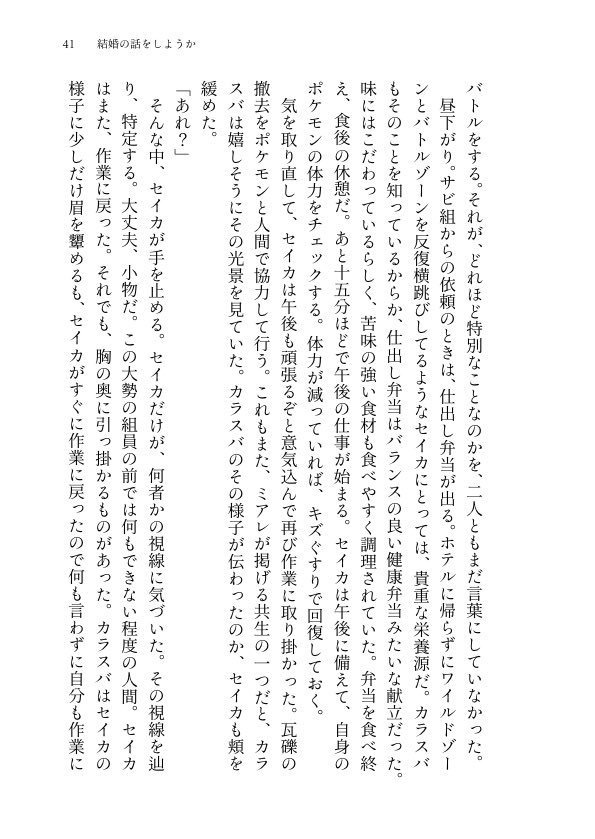 41 結婚の話をしようか
バトルをする。それが、どれほど特別なことなのかを、二人ともまだ言葉にしていなかった。
　昼下がり。サビ組からの依頼のときは、仕出し弁当が出る。ホテルに帰らずにワイルドゾー
ンとバトルゾーンを反復横跳びしてるようなセイカにとっては、貴重な栄養源だ。カラスバ
もそのことを知っているからか、仕出し弁当はバランスの良い健康弁当みたいな献立だった。
味にはこだわっているらしく、苦味の強い食材も食べやすく調理されていた。弁当を食べ終
え、食後の休憩だ。あと十五分ほどで午後の仕事が始まる。セイカは午後に備えて、自身の
ポケモンの体力をチェックする。体力が減っていれば、キズぐすりで回復しておく。
　気を取り直して、セイカは午後も頑張るぞと意気込んで再び作業に取り掛かった。瓦礫の
撤去をポケモンと人間で協力して行う。これもまた、ミアレが掲げる共生の一つだと、カラ
スバは嬉しそうにその光景を見ていた。カラスバのその様子が伝わったのか、セイカも頬を
緩めた。
「あれ？」
　そんな中、セイカが手を止める。セイカだけが、何者かの視線に気づいた。その視線を辿
り、特定する。大丈夫、小物だ。この大勢の組員の前では何もできない程度の人間。セイカ
はまた、作業に戻った。それでも、胸の奥に引っ掛かるものがあった。カラスバはセイカの
様子に少しだけ眉を顰めるも、セイカがすぐに作業に戻ったので何も言わずに自分も作業に